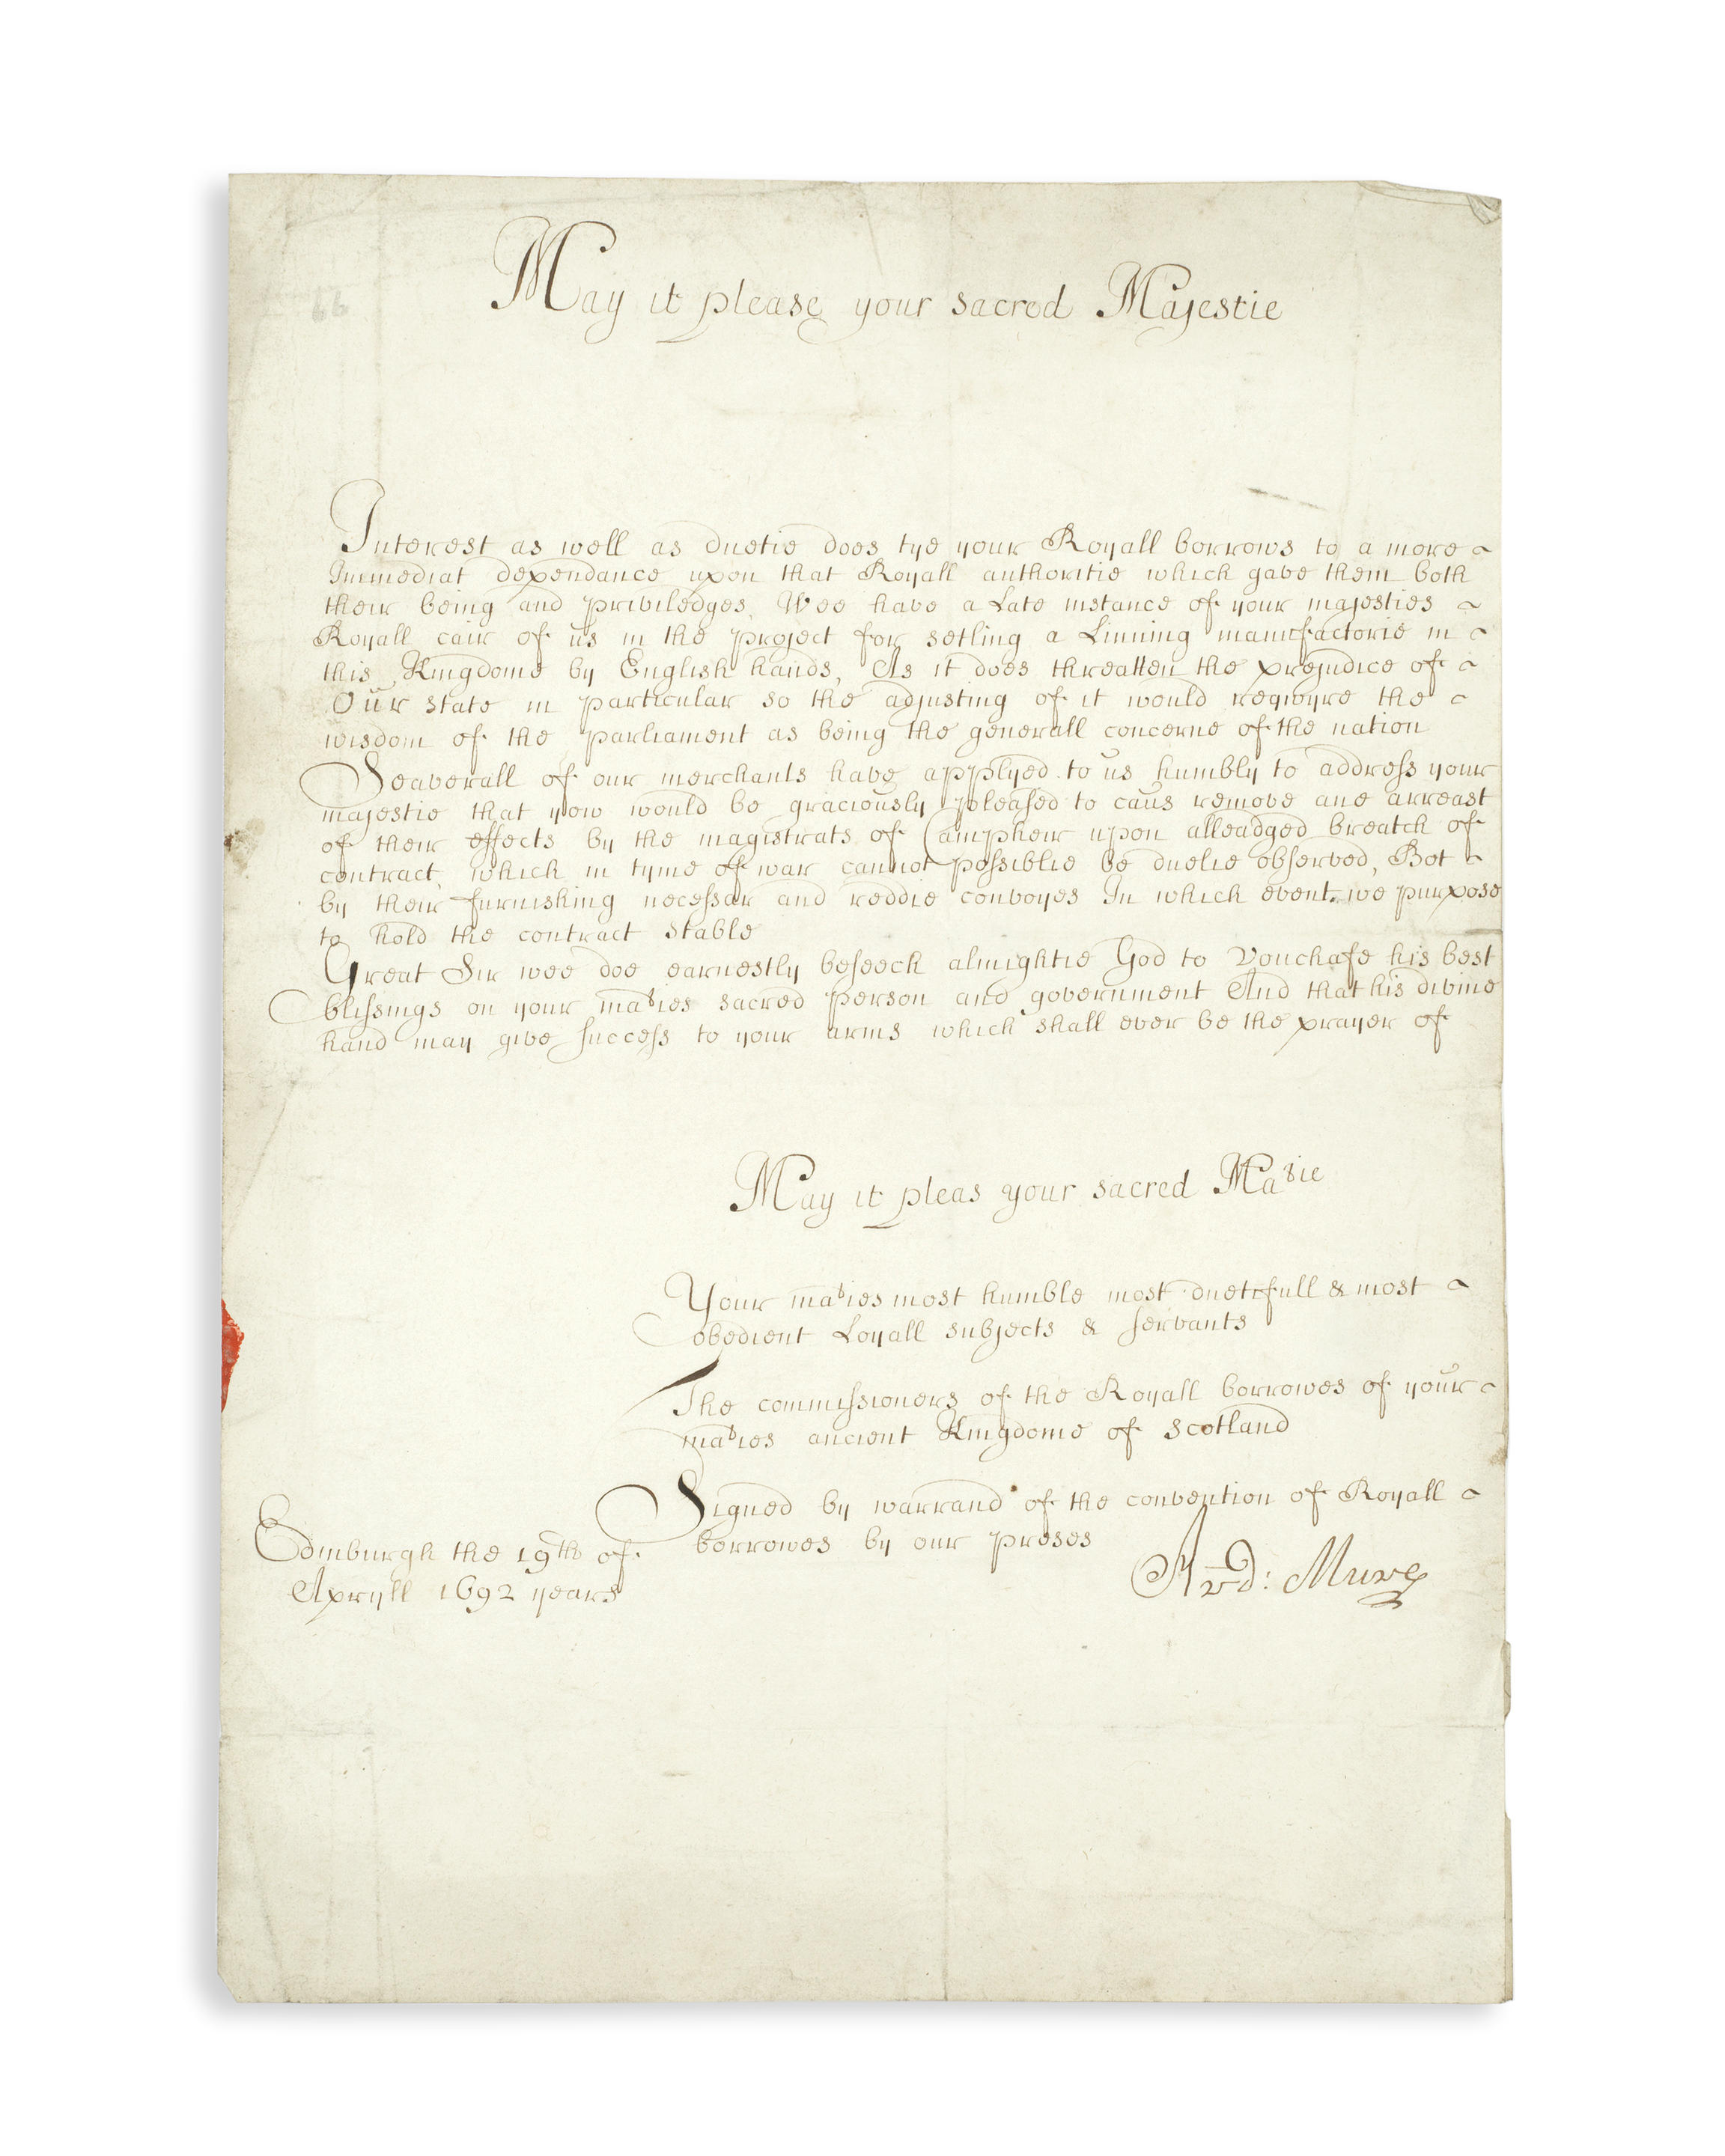 66
May it please your sacred Majestie
Interest as well as duetie does tye your Royall borrows to a more
Immediat dependance upon that Royall authoritie which gave them both
their being and priviledges, Wee have a Late instance of your majesties
Royall cair of us in the project for setling a Linning manufactorie in
this Kingdome by English hands, As it does threatten the prejudice of
Our state in particular so the adjusting of it would requyre the
wisdom of the parliament as being the generall concerne of the nation
Seaverall of our merchants have applyed to us humbly to address your
majestie that yow would be graciously pleased to caus remove ane arreast
of their effects by the magistrats of Campheir upon alleadged breatch of
contract, which in tyme of war cannot possiblie be duelie observed, Bot
by their furnishing necessar and reddie convoyes In which event we purpose
to hold the contract stable
Great Sir wee doe earnestly beseech almightie God to Vouchafe his best
blissings on your maties sacred person and government And that his divine
hand may give success to your arms which shall ever be the prayer of
May it pleas your sacred Matie
Your maties most humble most duetifull & most
obedient Loyall subjects & servants
The commissioners of the Royall borrowes of your
maties ancient Kingdome of Scotland
Signed by warrand of the convention of Royall
borrowes by our preses
Edinburgh the 19th of
Apryll 1692 years
Ard: Mure